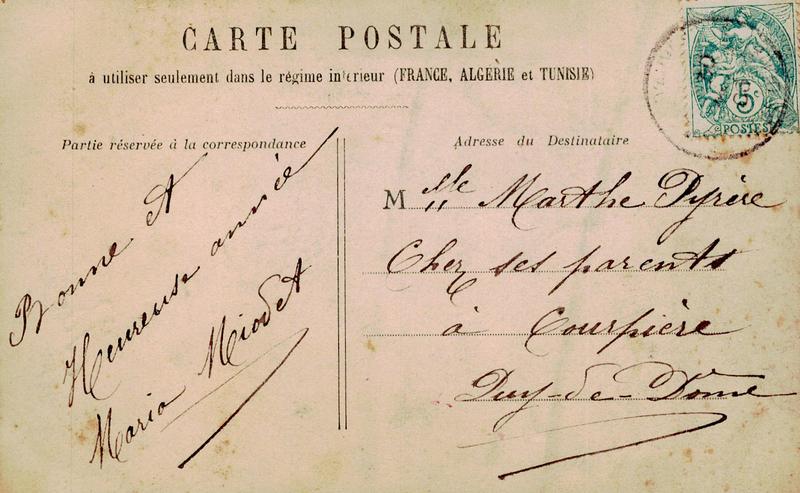 CARTE POSTALE
à utiliser seulement dans le régime intérieur (FRANCE, ALGÉRIE et TUNISIE)
Partie réservée à la correspondance
Bonne et
Heureuse année
Maria Miodet
Adresse du Destinataire
Melle Marthe Pyrère
Chez ses parents
à Courpière
Puy-de-Dôme
5c
POSTES